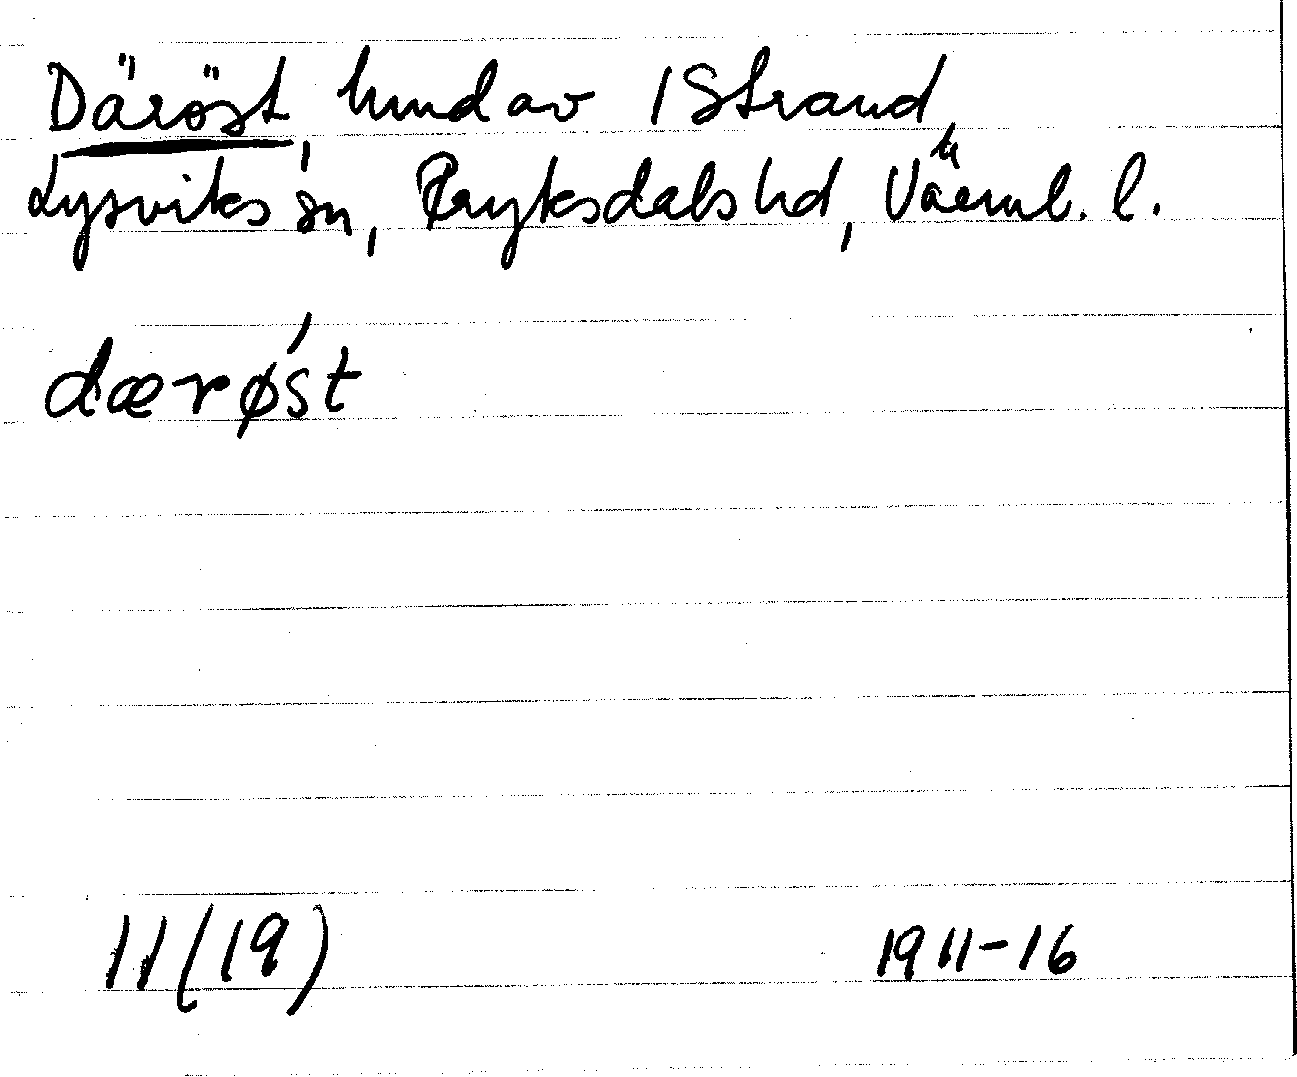 Däröst, hmd av 1 Strand,
Lysviks sn, Fryksdals hd, Värml. l.
dærøst
11(19)
1911-16